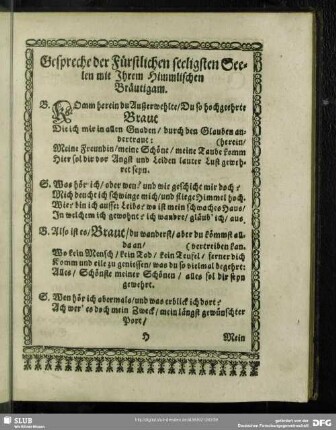 Gespreche der Fürstlichen seeligsten See-
len mit Ihrem Himmlischen
Bräutigam.
B. KOmm herein du Außerwehlte/ Du so hochgeehrte
Braut
Die ich mir in allen Gnaden/ durch den Glauben an-
vertraut: (herein/
Meine Freundin/ meine Schöne/ meine Taube komm
Hier sol dir vor Angst und Leiden lauter Lust geweh-
ret seyn.
S. Was hör ich/ aber wen/ und wie geschicht mir doch?
Mich deucht ich schwinge mich/ und fliege Himmel hoch.
Wie? bin ich ausser Leibe/ wo ist mein schwaches Haus/
In welchem ich gewohnt? ich wandre/ gläub' ich/ aus.
B. Also ist es/ Braut/ du wanderst/ aber du kömmst all-
da an/ (vertreiben kan.
Wo kein Mensch/ kein Tod/ kein Teufel/ ferner dich
Komm und eile zu geniessen/ was du so vielmal begehrt:
Alles/ Schönste meiner Schönen/ alles sol dir seyn
gewehrt.
S. Wen hör ich abermals/ und was erblick ich dort?
Ach wer' es doch mein Zweck/ mein längst gewünschter
Port/
Mein
SLUB
Wir führen Wissen.
gefördert von der
Deutschen Forschungsgemeinschaft
DFG